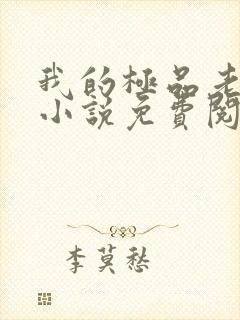 我的極品老
小說免費閱
李莫愁